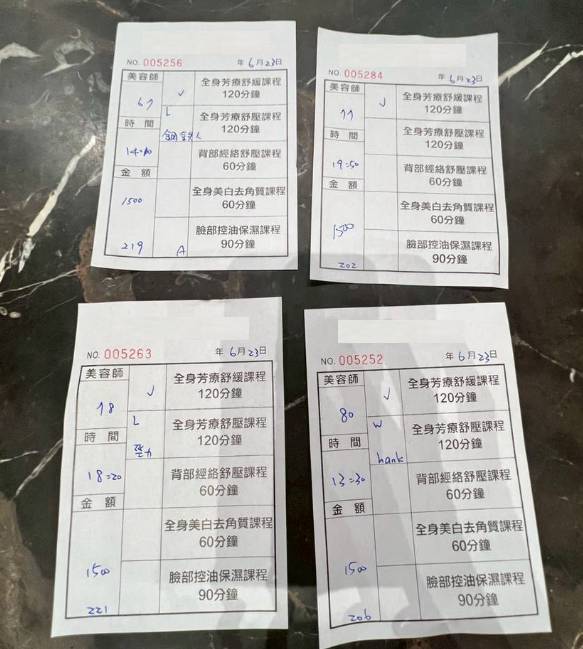 NO. 005256 年6月23日
美容師
67
時間
14:10
金額
1500
219
✓
L
鋼鉄人
A
全身芳療舒緩課程
120分鐘
全身芳療舒壓課程
120分鐘
背部經絡舒壓課程
60分鐘
全身美白去角質課程
60分鐘
臉部控油保濕課程
90分鐘
NO. 005284 年6月23日
美容師
77
時間
19:50
金額
1500
202
✓
全身芳療舒緩課程
120分鐘
全身芳療舒壓課程
120分鐘
背部經絡舒壓課程
60分鐘
全身美白去角質課程
60分鐘
臉部控油保濕課程
90分鐘
NO. 005263 年6月23日
美容師
78
時間
18:20
金額
1500
221
✓
L
全身芳療舒緩課程
120分鐘
全身芳療舒壓課程
120分鐘
背部經絡舒壓課程
60分鐘
全身美白去角質課程
60分鐘
臉部控油保濕課程
90分鐘
NO. 005252 年6月23日
美容師
80
時間
13:30
金額
1500
206
✓
W
hank
全身芳療舒緩課程
120分鐘
全身芳療舒壓課程
120分鐘
背部經絡舒壓課程
60分鐘
全身美白去角質課程
60分鐘
臉部控油保濕課程
90分鐘